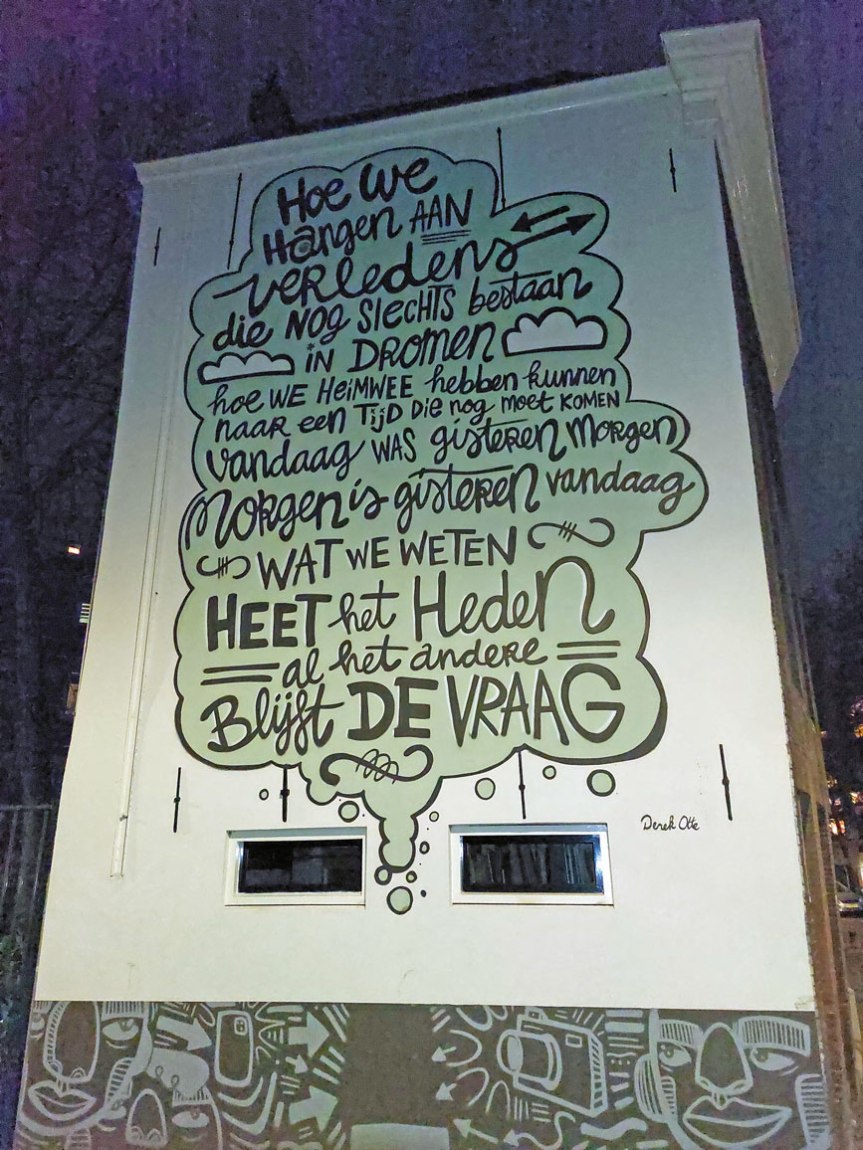 Hoe we
Hangen AAN
verledens
die NOG SlecHTS bestaan
iN DROMEN
hoe WE HeiMWEE hebben kunnen
naar een TijD Die nog moet KOMEN
vandaag WAS gisteren Morgen
Morgen is gisteren vandaag
WAT WE WETEN
HEET het Heden
al het andere
Blijft DE VRAAG
Derek Otte